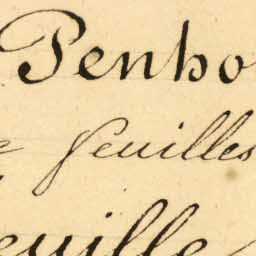 Penho
feuilles
euille